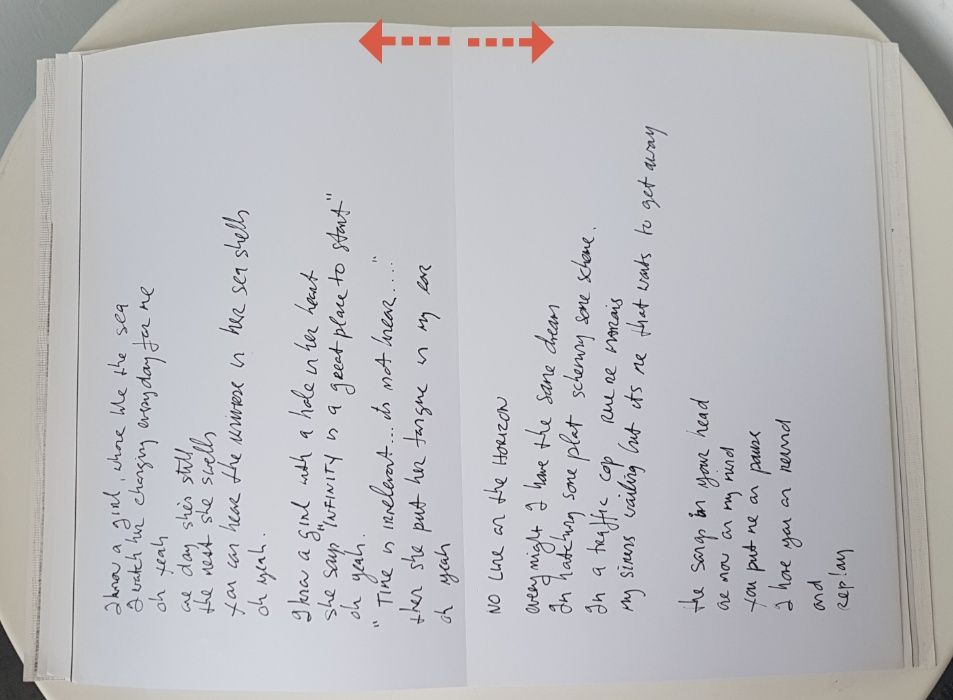 I know a girl, whose like the sea
I watch her changing everyday for me
oh yeah
one day she's still,
the next she swells
you can hear the universe in her sea shells
oh yeah.
I know a girl with a hole in her heart
she says "INFINITY is a great place to start"
oh yeah.
"Time is irrelevant... its not linear...."
then she put her tongue in my ear
oh yeah
NO Line on the HORIZON
every night I have the same dream
Im hatching some plot scheming some scheme.
Im a traffic cop rue ne marais
my sirens wailing but its me that wants to get away
the songs in your head
are now on my mind
you put me on pause
I have you on rewind
and
Replay